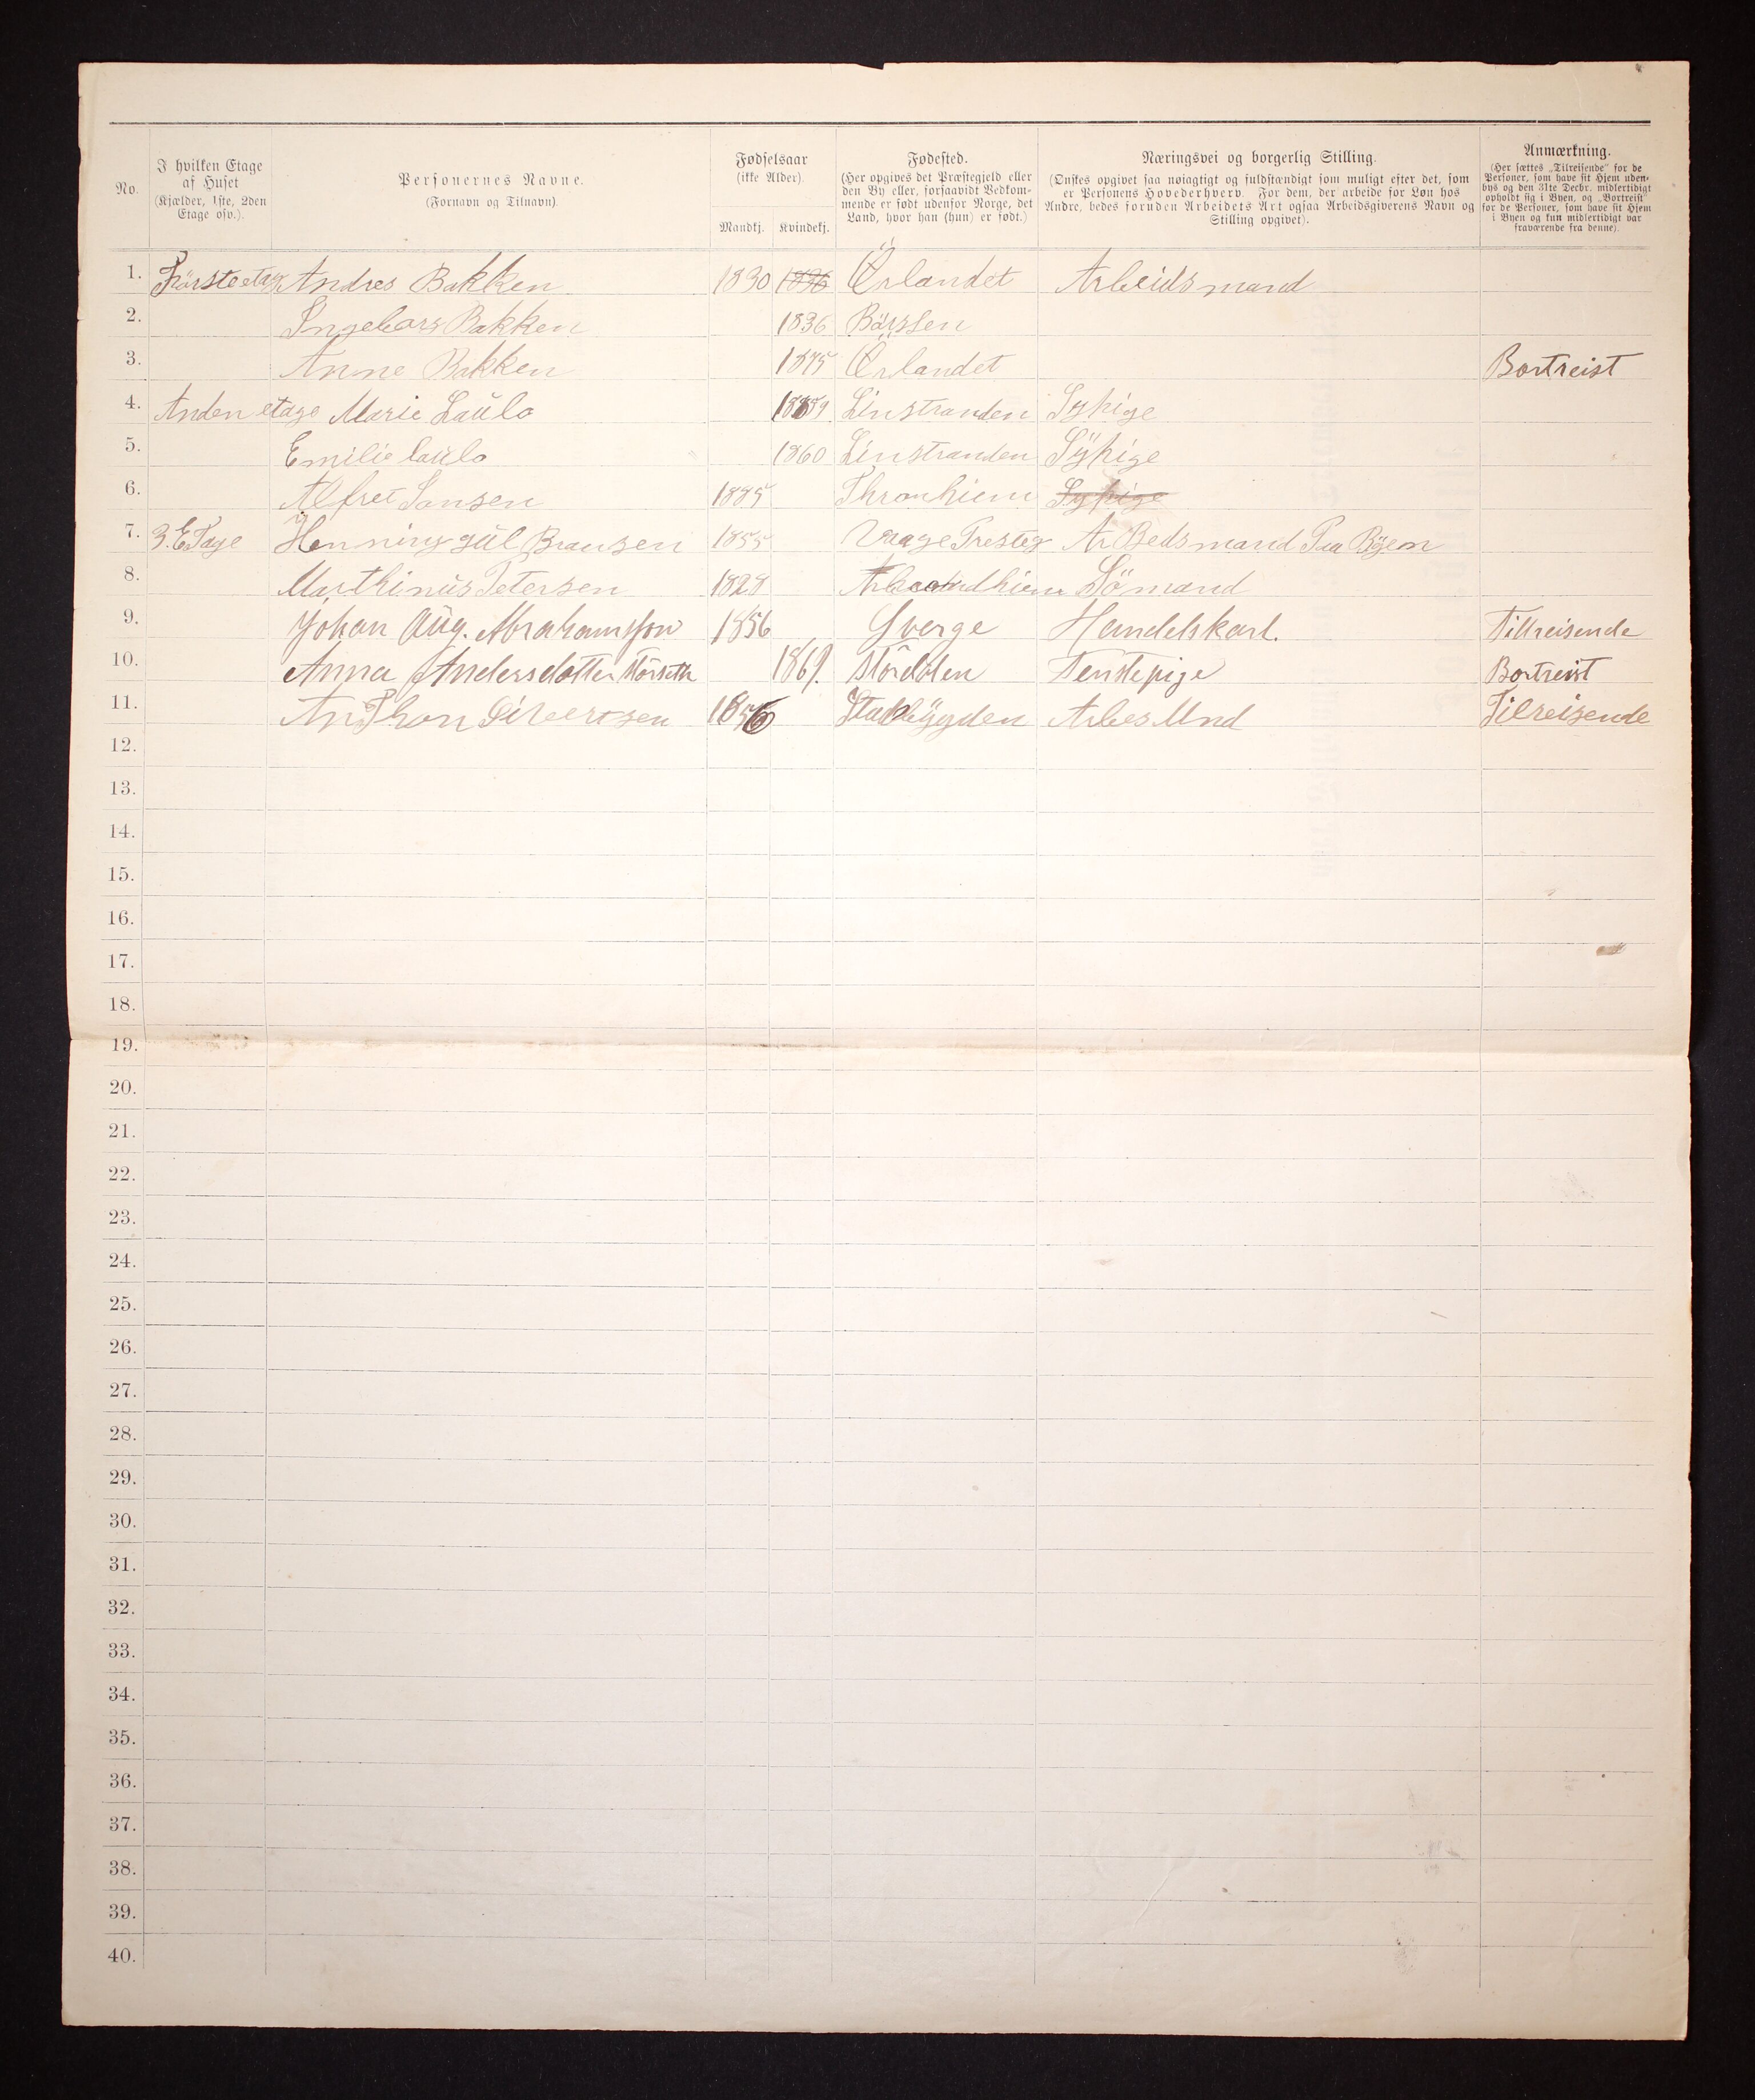 No.
I hvilken Etage
af Huset
(Kjælder, 1ste, 2den
Etage osv.).
Personernes Navne.
(Fornavn og Tilnavn).
Fødselsaar
(ikke Alder).
Mandkj. Kvindekj.
Fødested.
(Her opgives det Præstegjeld eller
den By eller, forsaavidt Vedkom-
mende er født udenfor Norge, det
Land, hvor han (hun) er født.)
Næringsvei og borgerlig Stilling.
(Ønskes opgivet saa nøiagtigt og fuldstændigt som muligt efter det, som
er Personens Hovederhverv. For dem, der arbeide for Løn hos
Andre, bedes foruden Arbeidets Art ogsaa Arbeidsgiverens Navn og
Stilling opgivet).
Anmærkning.
(Her sættes „Tilreisende" for de
Personer, som have sit Hjem uden-
bys og den 31te Decbr. midlertidigt
opholdt sig i Byen, og „Bortreist"
for de Personer, som have sit Hjem
i Byen og kun midlertidigt var
fraværende fra denne).
1. Förste etage Andres Bakken 1830 1836 Örlandet Arbeidsmand
2. Ingeborg Bakken 1836 Börssen
3. Anne Bakken 1875 Örlandet Bortreist
4. Anden etage Marie Laulo 1859 Linstranden Syhige
5. Emilie laulo 1860 Linstranden Syhige
6. Alfret Jonsen 1885 Thronhiem Syhige
7. 3. ETage Henning Jül Brausen 1855 Vaage Presteg ArBedsmand Paa Byen
8. Marthinus Petersen 1828 Sömand
9. Johan Aug. Abrahamsson 1856 Sverge Handelskarl. Tillreisende
10. Anna Andersdatter Störseth 1869. Stördalen Tenstepige Bortreist
11. AnThon Sivertsen 1856 Stadsbygden Arbes Mnd Tilreisende
12.
13.
14.
15.
16.
17.
18.
19.
20.
21.
22.
23.
24.
25.
26.
27.
28.
29.
30.
31.
32.
33.
34.
35.
36.
37.
38.
39.
40.